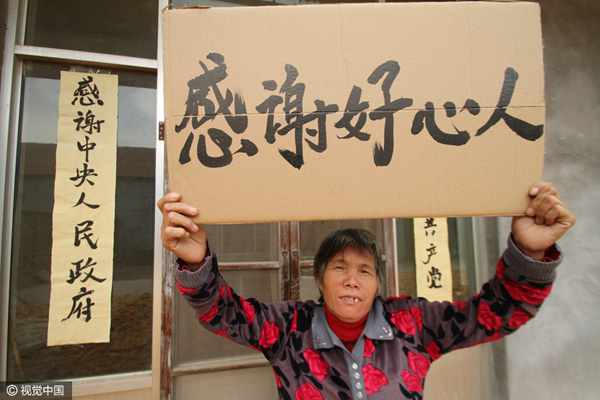 感谢好心人
感谢中央人民政府
共产党
© 视觉中国